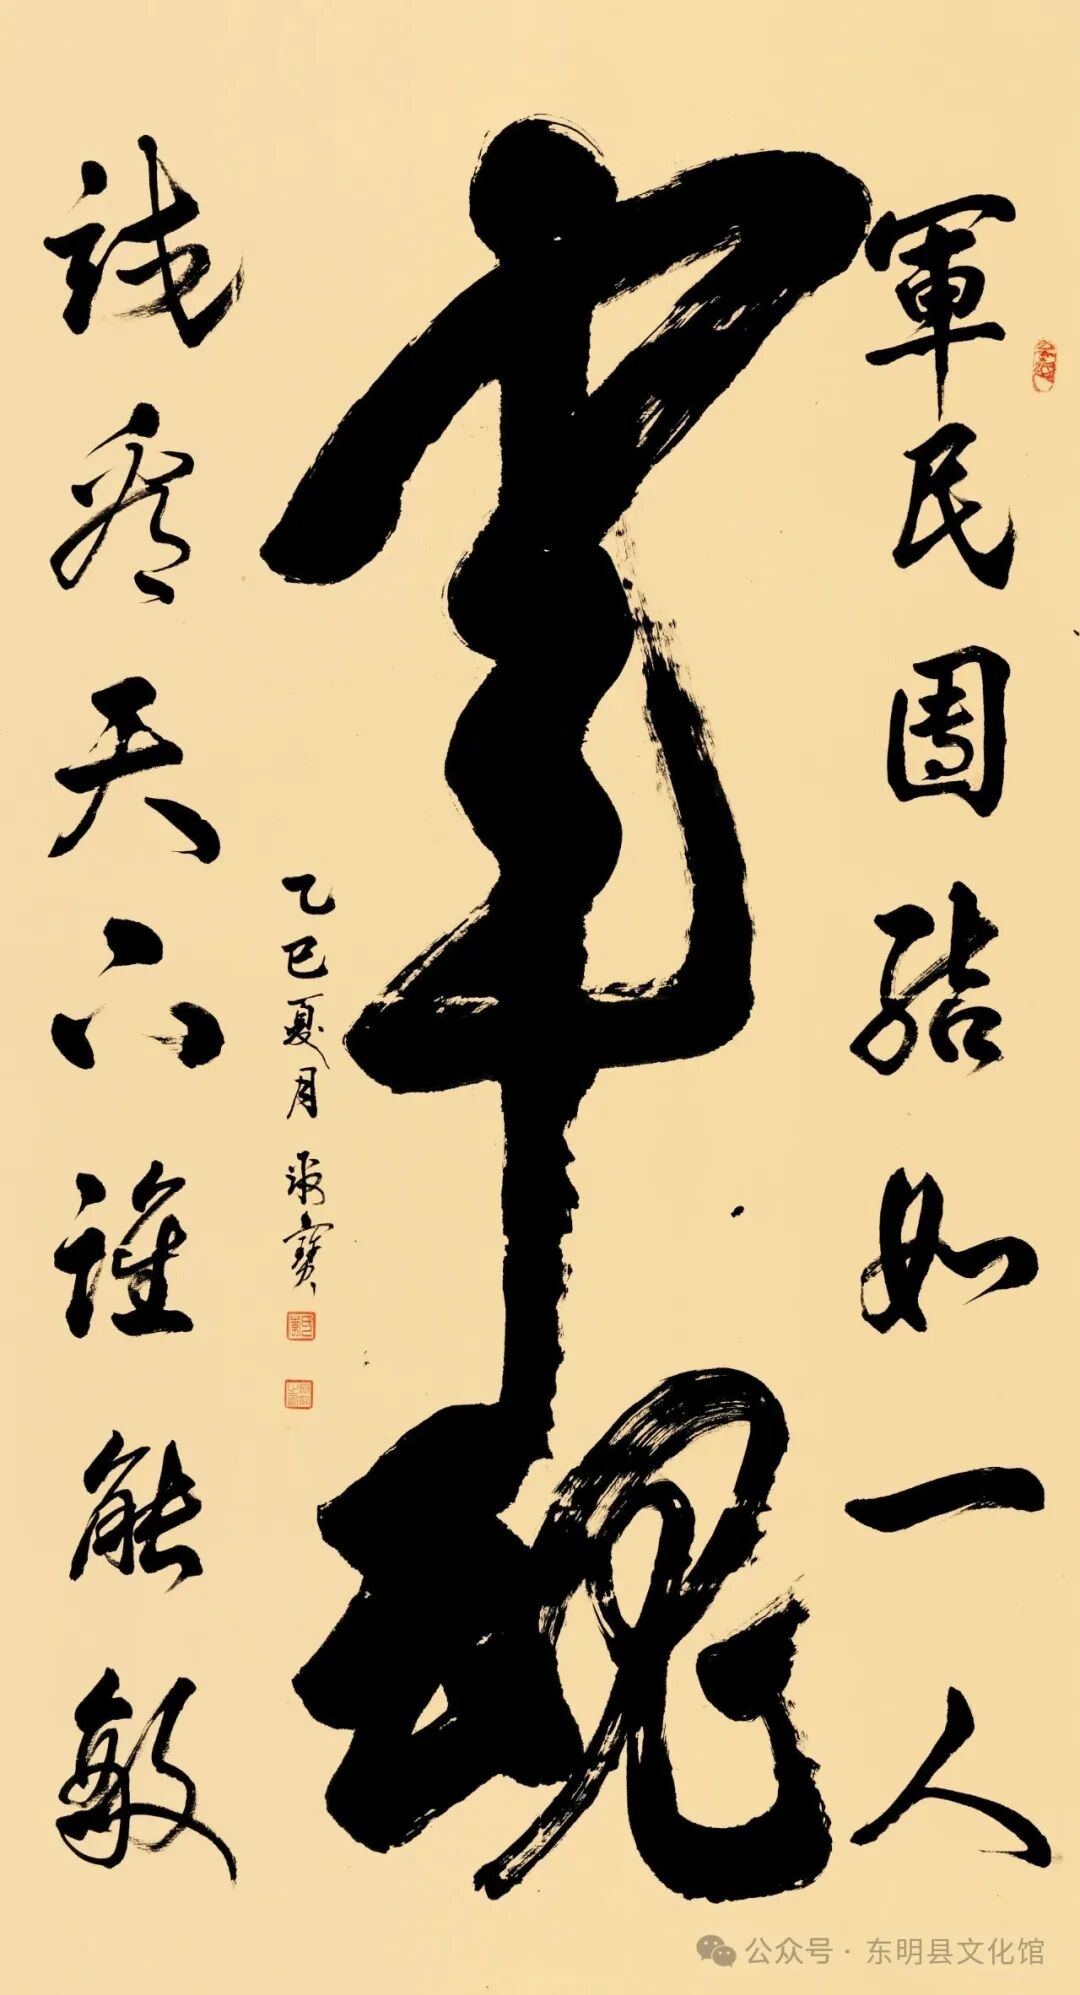 軍民團結如一人
軍魂
試看天下誰能敵
乙巳夏月
公众号 · 东明县文化馆